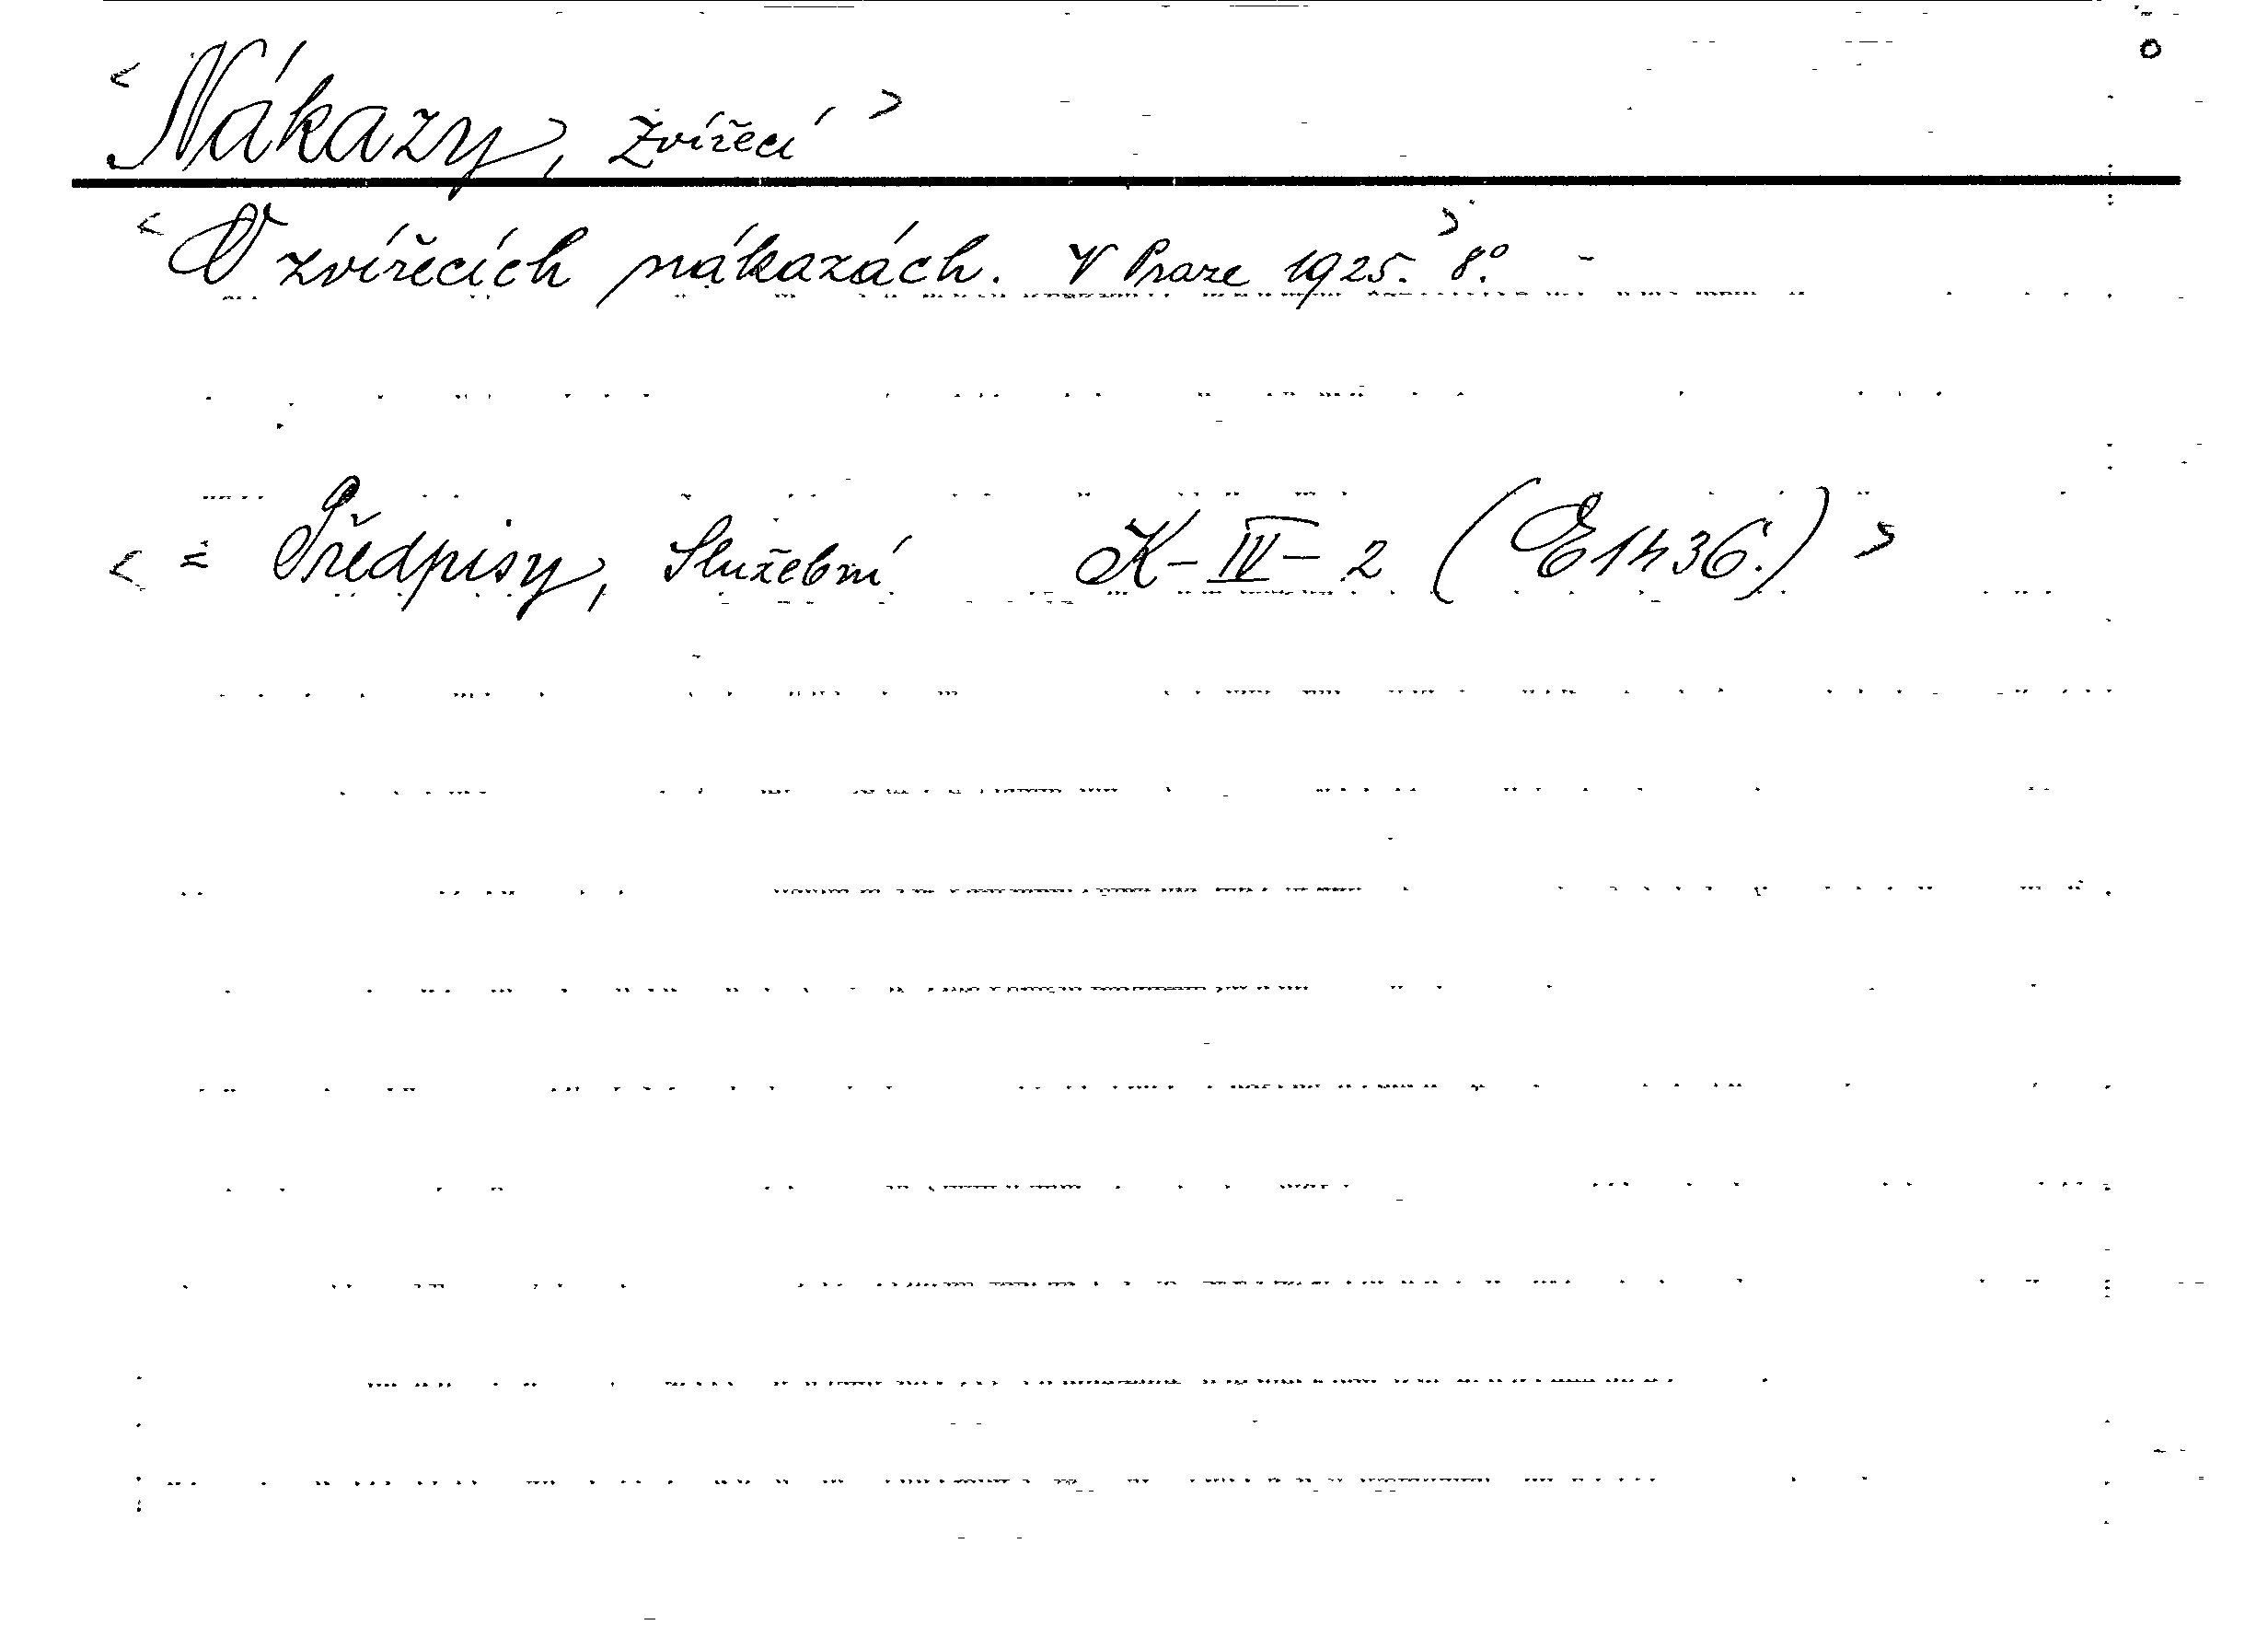 < Nákazy, zvířecí >
< O zvířecích nákazách. V Praze 1925. 8°. > -
< = Předpisy, Služební K-IV-2 (E1436.) >